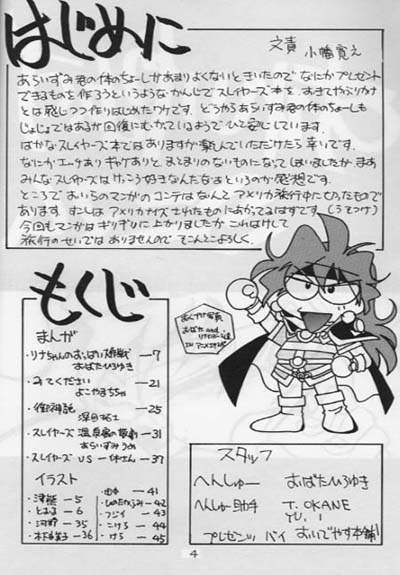 はじめに
文責 小幡寛え
あらいずみ君の体のちょーしがあまりよくないときいたので なにか プレゼント
できるものを作ろうというような かんじで スレイヤーズ本を
とは感じつつ作りはじめたワケです。どうやらあらいずみ君の体のちょーしも
じょじょではあるが回復にむかっているようで ひと安心しています。
ばかなスレイヤーズ本ではありますが楽しんでいただけたら幸いです。
なにか エーチあり ギャグありと、まとまりのないものになってしまいましたが まあ
みんなスレイヤーズはけっこう好きなんだなあというのが感想です。
ところで あいちのマンガのコンテはなんと アメリカ旅行中にとったもので
あります。すこしは アメリカナイズされたものにあがってるはずです。(うそつけ)
今回もマンガは ギリギリに上がりましたが これはけして
旅行のせいでは ありませんので てこんとこよろしく。
もくじ
まんが
・リナちゃんのおっぱい大作戦 ー7
おばたひろゆき
・みてください ー21
よこやまちちゃ
・御神託 ー25
深田拓士
・スレイヤーズ 温泉 ー31
あらいずみうめ
・スレイヤーズ VS 一休さん ー37
イラスト
・津能 ー5
・とおる ー6
・河野 ー35
ー36
・由中 ー41
・ひのたからみ ー42
・フジイ ー43
・こけら ー44
・けろ ー45
おばた and
スタッフ
へんしゅー おばたひろゆき
へんしゅー助手 T. OKANE
YU. I
プレゼンツ バイ おいでやす本舗
4